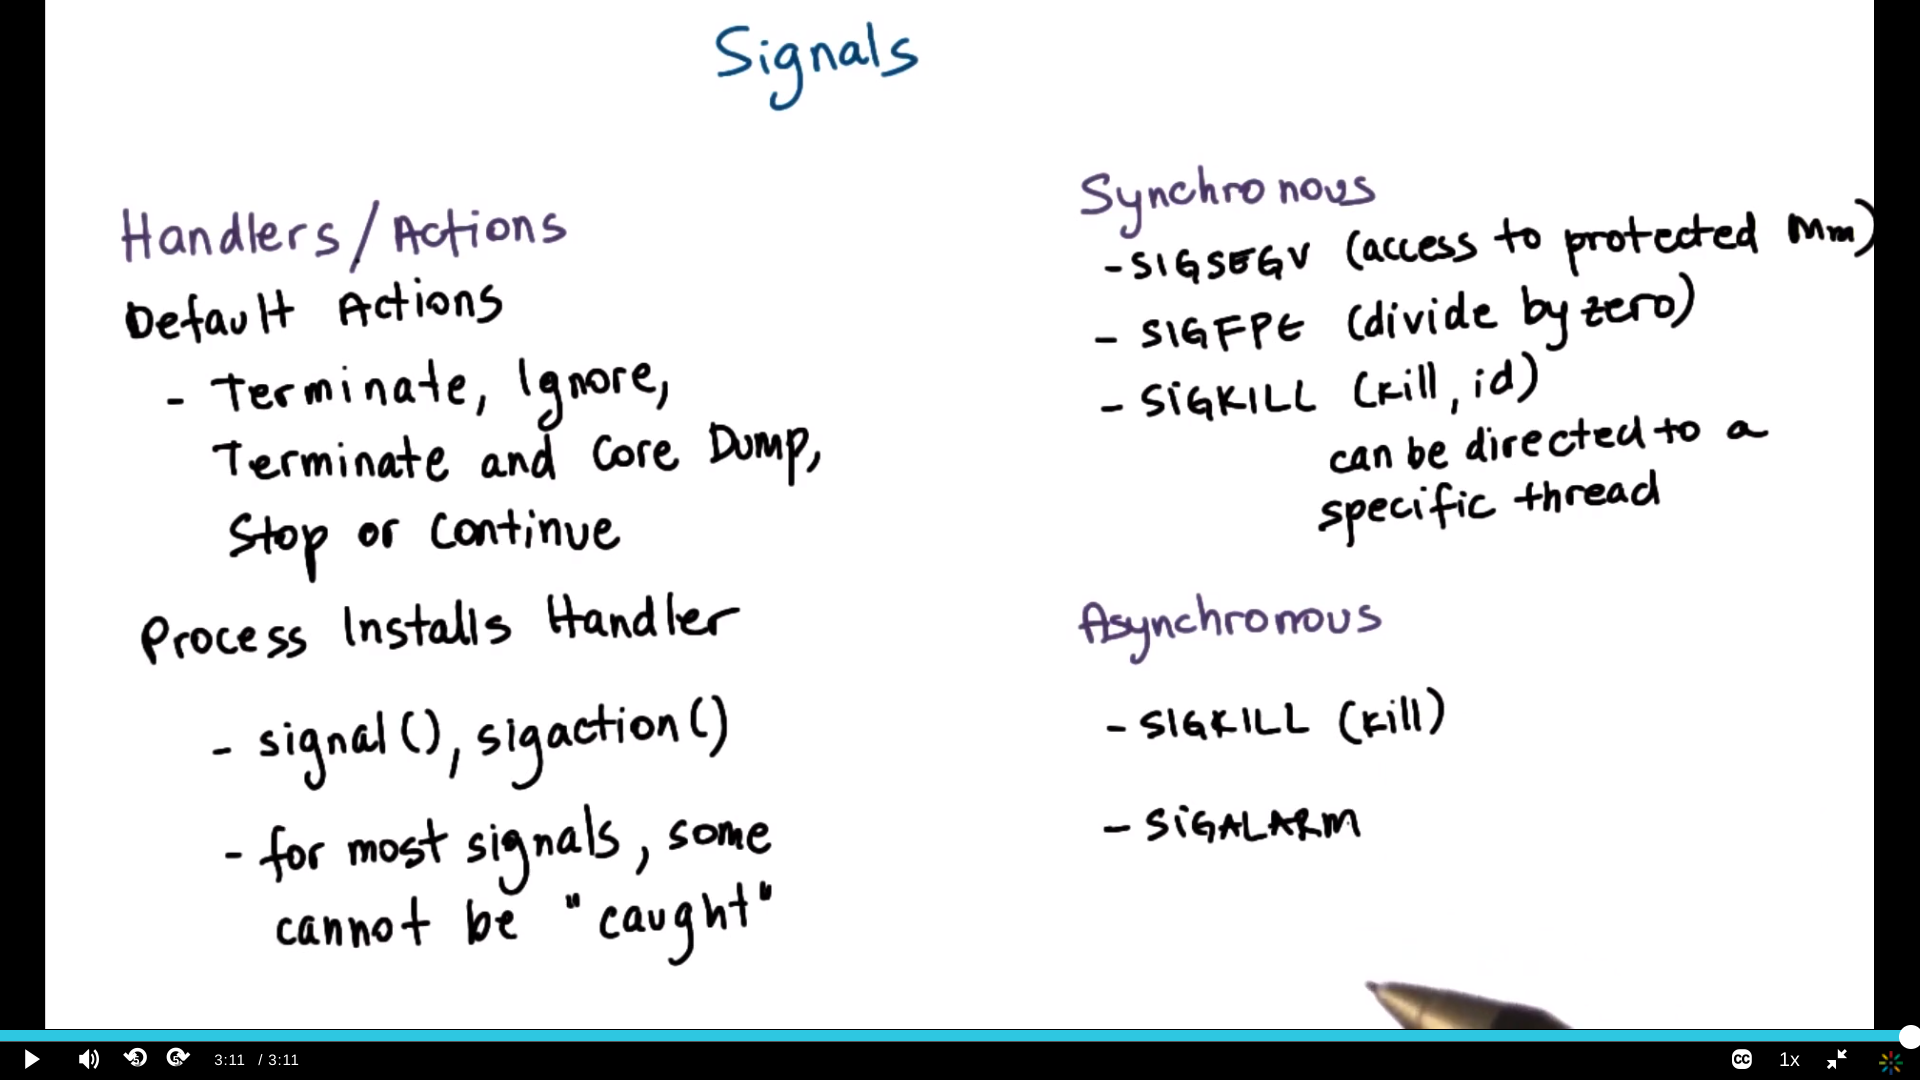 Signals
Handlers/Actions
Default Actions
- Terminate, Ignore,
Terminate and Core Dump,
Stop or Continue
Process Installs Handler
- signal(), sigaction()
- for most signals, some
cannot be "caught"
Synchronous
- SIGSEGV (access to protected Mm)
- SIGFPE (divide by zero)
- SIGKILL (kill, id)
can be directed to a
specific thread
Asynchronous
- SIGKILL (kill)
- SIGALARM
5 5 3:11 / 3:11 CC 1x